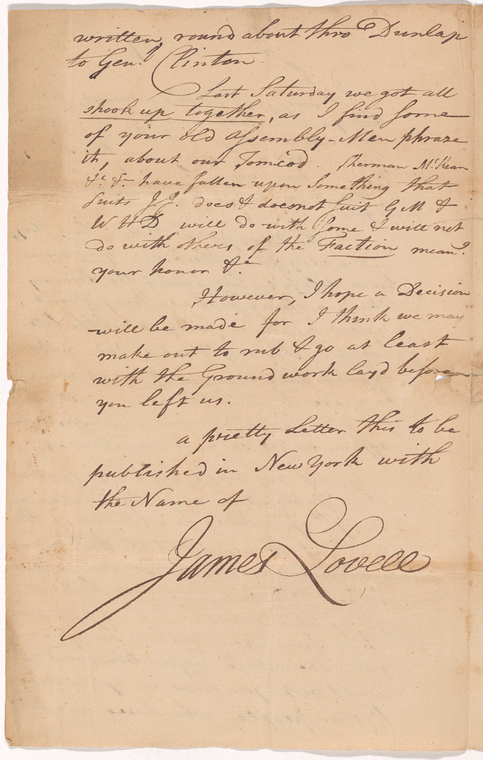 written, round about thro Dunlap
to Gen.l Clinton.
Last Saturday we got all
shook up together, as I find some
of your old Assembly-Men phraze
it, about our Tomcod. Sherman McKean
&c &c have fallen upon something that
suits J.J. does & does not suit G M &
W H D will do with some & will not
do with others of the Faction mean.g
your honor &c
However, I hope a Decision
will be made for I think we may
make out to rub & go at least
with the Ground work layd before
you left us.
a pretty Letter this to be
published in New York with
the Name of
James Lovell